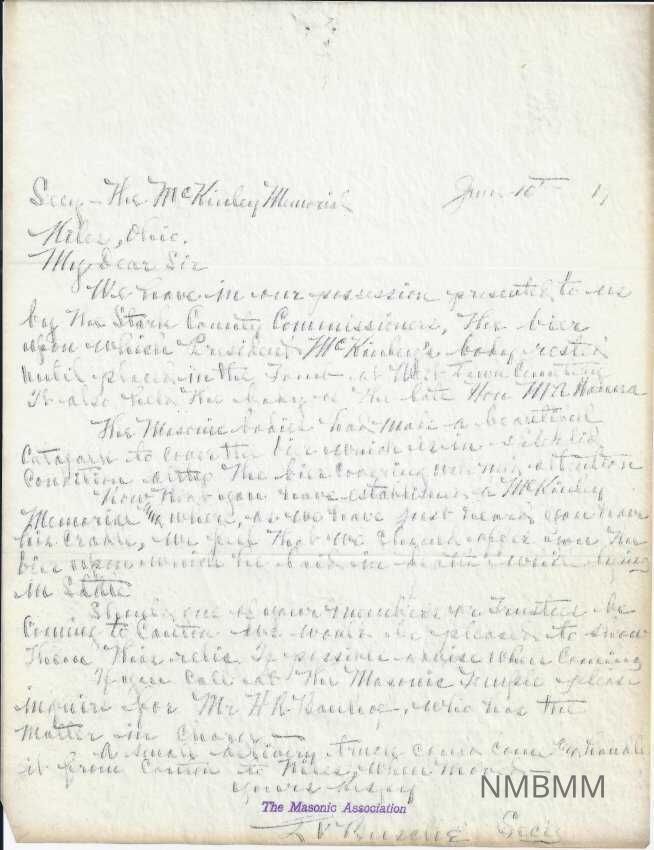 Secy - The McKinley Memorial
June 10th 19
Niles, Ohio.
My Dear Sir
We have in our possession presented to us
by the Stark County Commissioners, The bier
upon which President McKinley's body rested
until placed in the Tomb at West Lawn Cemetery
It also held the body of the late Hon M A Hanna
The Masonic bodies had made a beautiful
to cover the bier which is in splendid
condition the bier covering
Now that you have established a McKinley
Memorial where, as we have just heard you have
his cradle, we feel that we should offer you the
bier upon which he laid in while lying
in State
Should one of your members or Trustees be
coming to Canton we would be pleased to show
them this relic. If possible advise when coming
If you call at the Masonic Temple please
inquire for Mr H R who has the
matter in charge
A small delivery truck could handle
it from Canton to Niles, when moved
Yours Respy
The Masonic Association
Secy
NMBMM